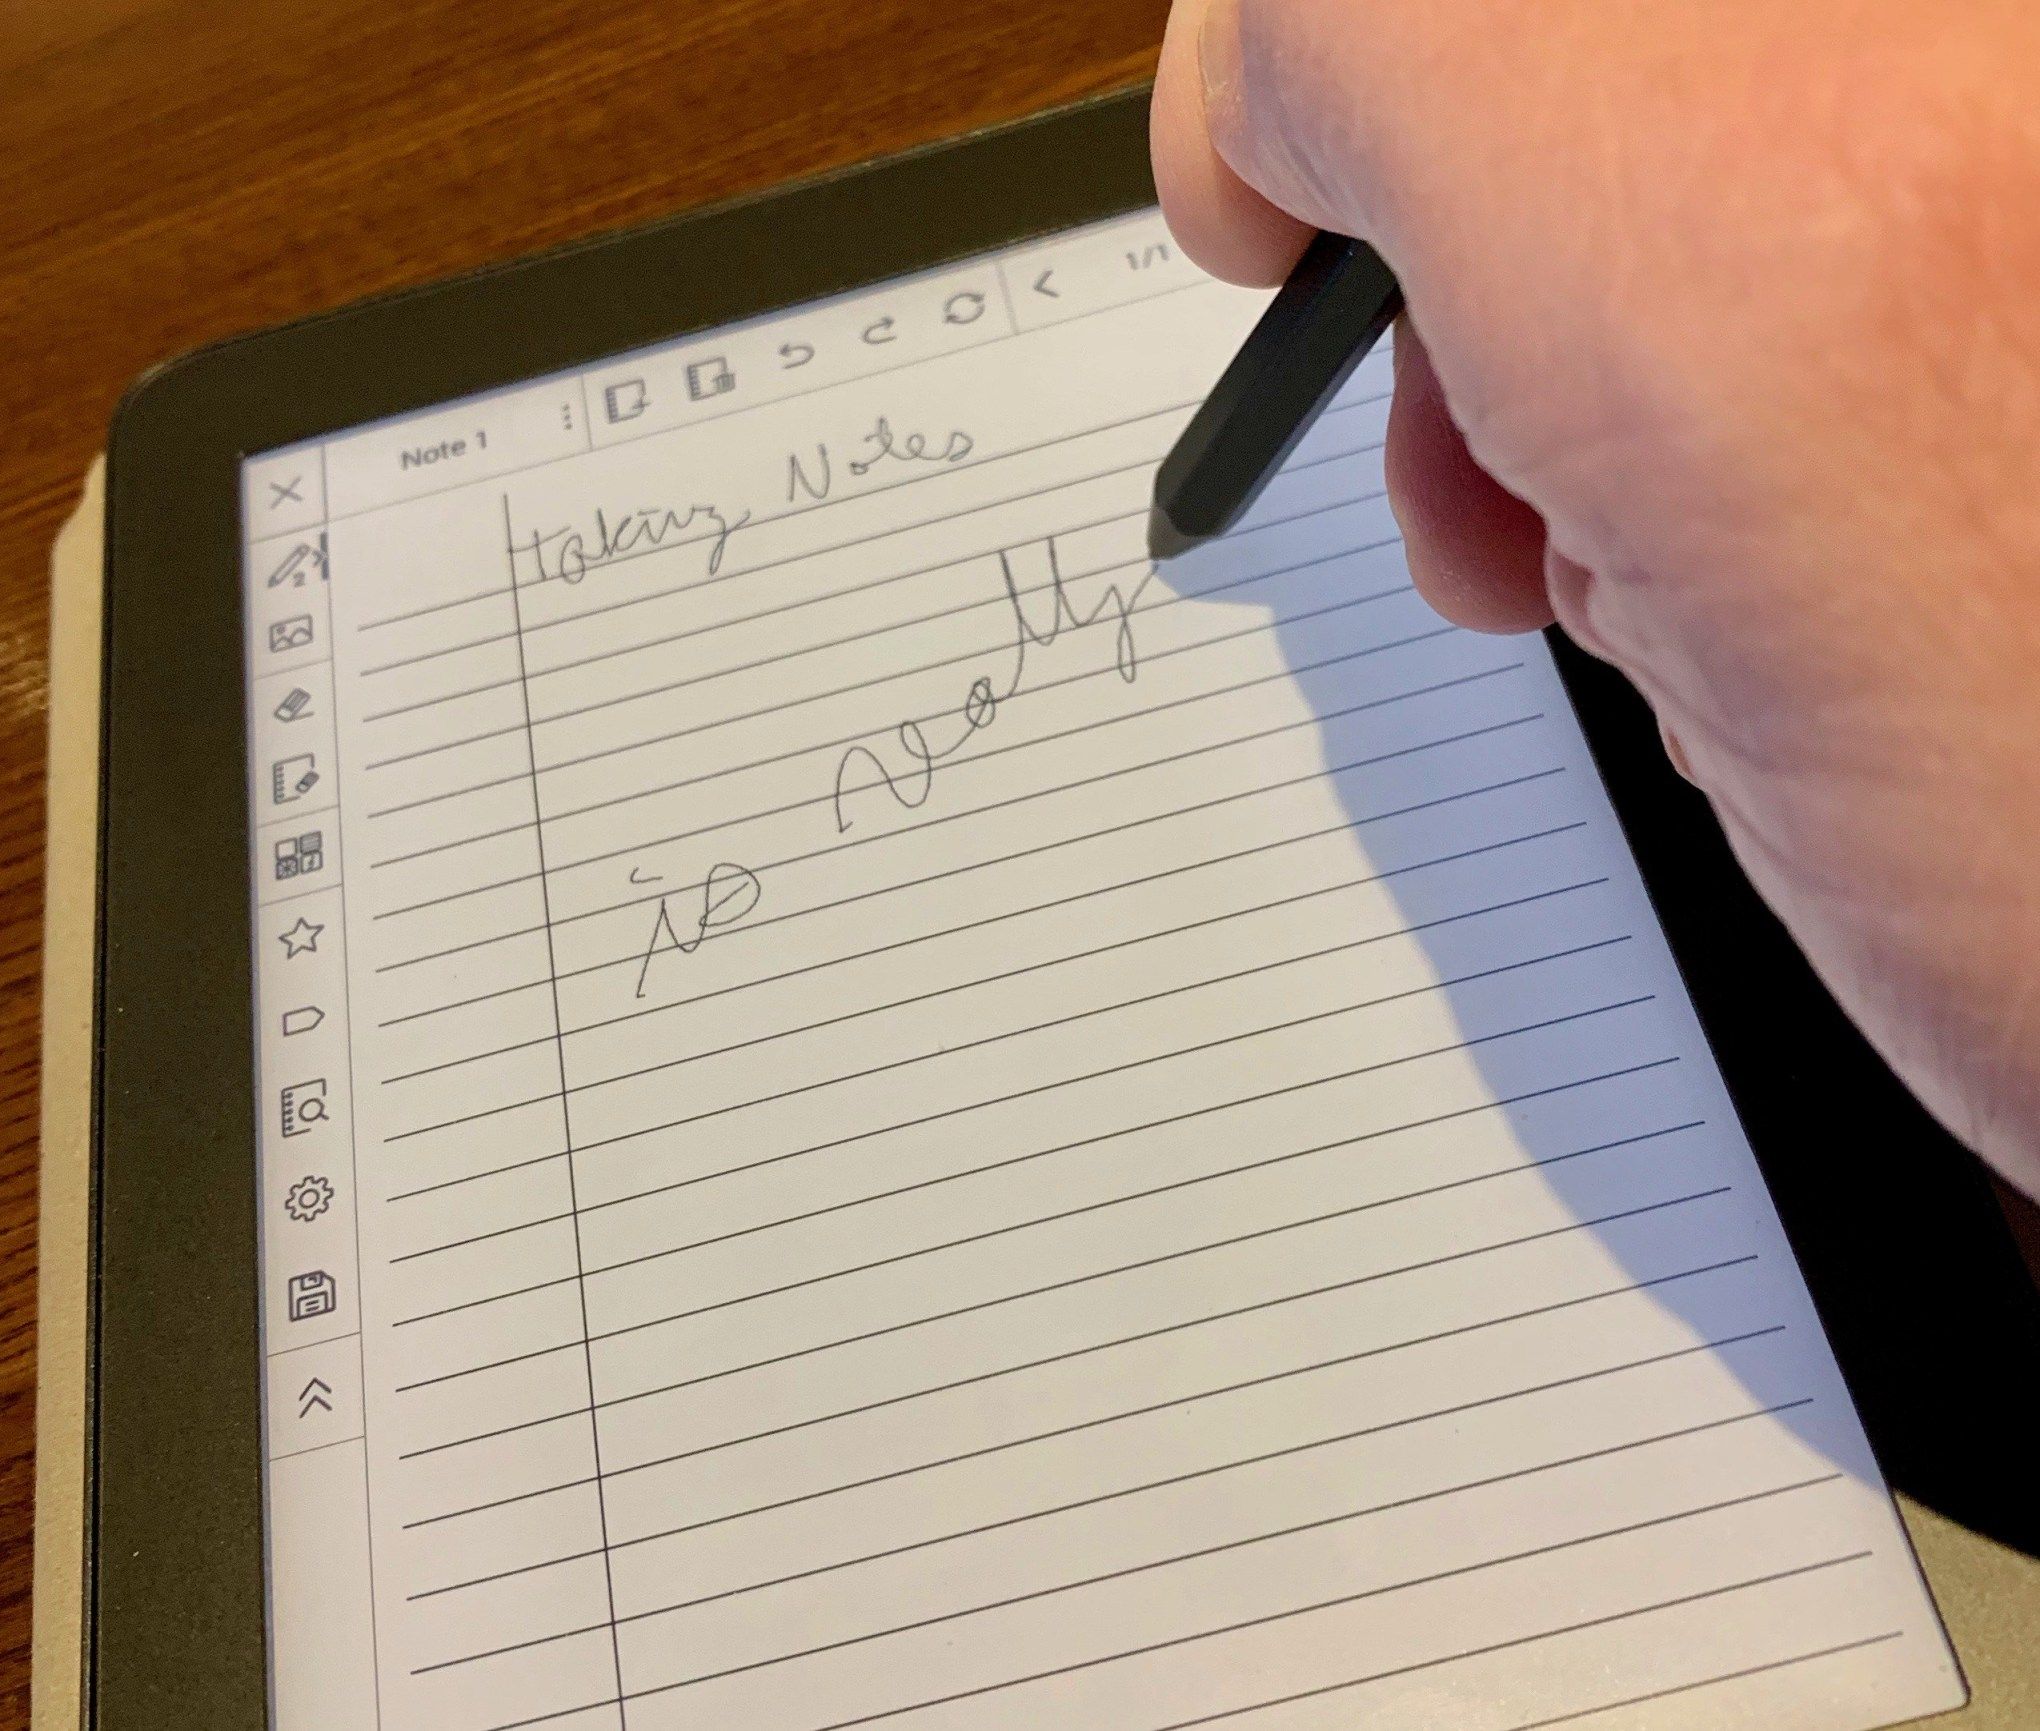 Note 1 1/1
taking Notes
is really